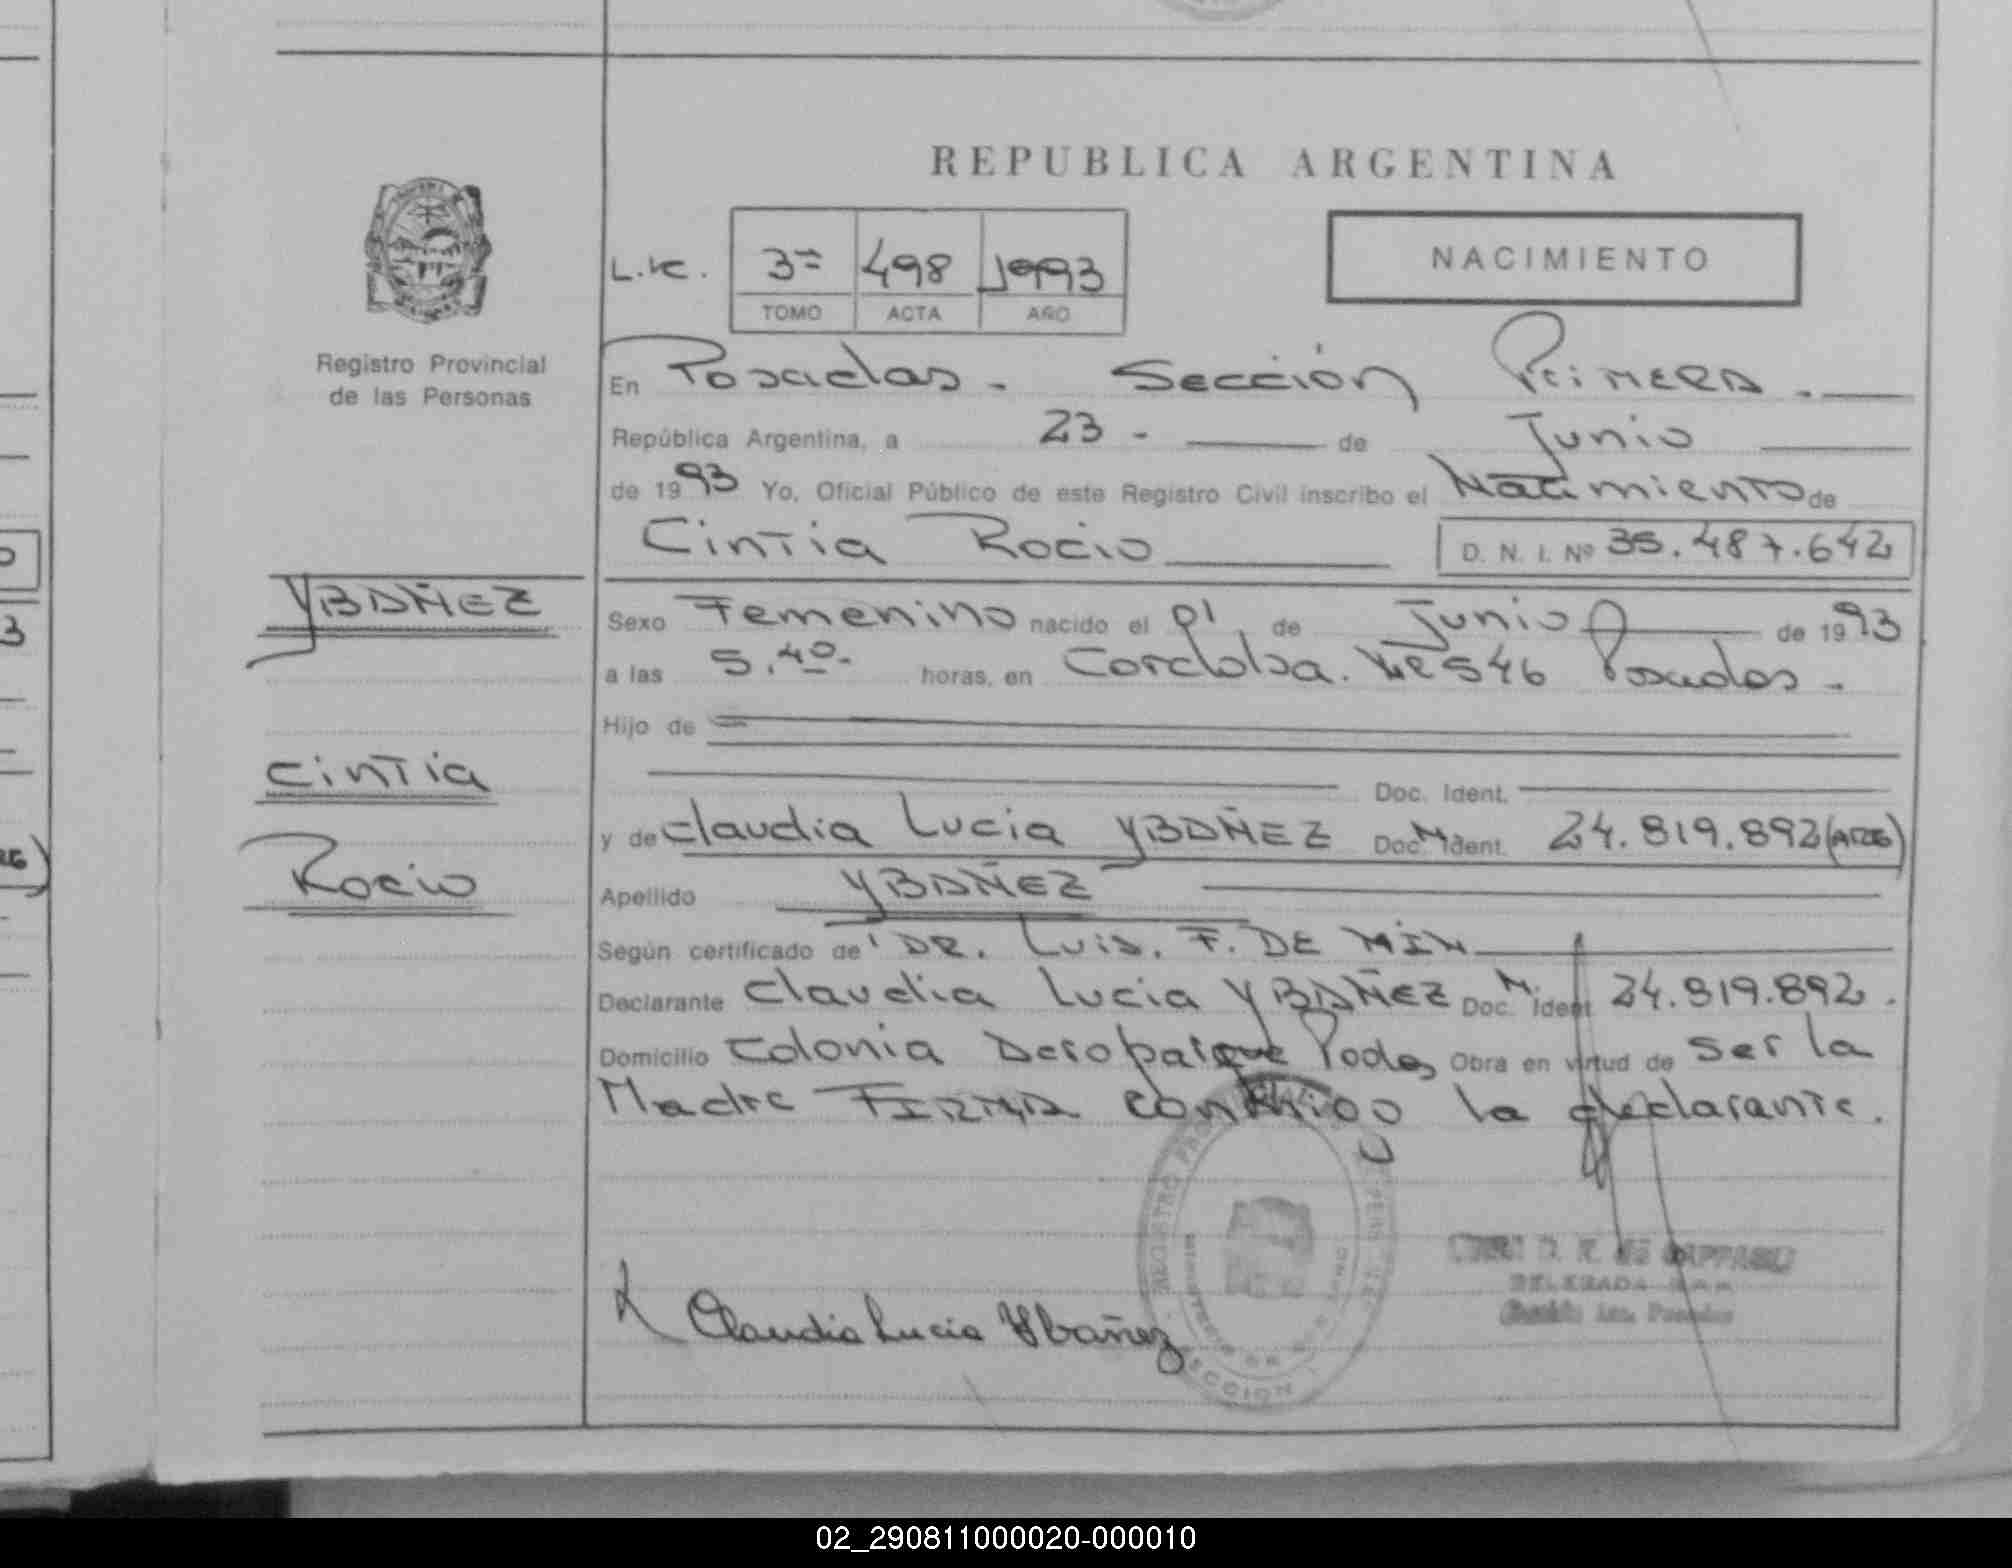 REPUBLICA ARGENTINA
NACIMIENTO
3º 498 1993
TOMO ACTA AÑO
Registro Provincial
de las Personas
En Posadas - Sección Primera . —
República Argentina, a 23 - — de Junio —
de 1993 Yo, Oficial Público de este Registro Civil inscribo el Nacimiento de
Cintia Rocio —
D. N. I. Nº 35.487.642
YBAÑEZ
Cintia
Rocio
Sexo Femenino nacido el 01 de Junio — de 1993
a las 5.40- horas, en Cordoba. Nº 546 Posadas -
Hijo de
Doc. Ident.
y de Claudia Lucia YBAÑEZ Doc. Ident. 24.819.892 (ARG)
Apellido YBAÑEZ
Según certificado de DR. Luis. F. DE MIN —
Declarante Claudia Lucia YBAÑEZ Doc. Ident 24.819.892.
Domicilio Colonia Aeroparque Podas Obra en virtud de Ser la
Madre FIRMA conmigo la declarante.
Claudia Lucia Ybañez
REGISTRO
SECCION
DELEGADA
02_290811000020-000010